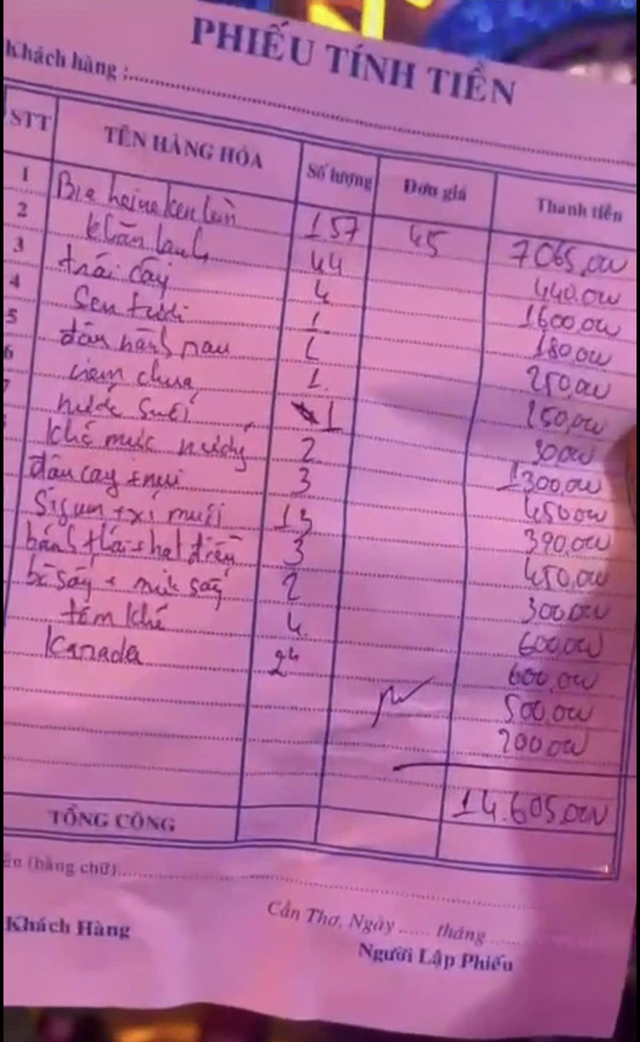 PHIẾU TÍNH TIỀN
Khách hàng :
STT TÊN HÀNG HÓA Số lượng Đơn giá Thành tiền
1 Bia heineken lùn 157 45 7065,000
2 khăn lạnh 44 440,000
3 trái cây 4 1600,000
4 Sen tươi 1 180,000
5 1 250,000
6 nem chua 1 150,000
7 nước suối 1 30,000
Khô mực nướng 2 1300,000
đậu cay + nui 3 450,000
Sigum + xí muội 13 390,000
bánh + hạt điều 3 450,000
bò sấy + mít sấy 2 300,000
tôm khô 4 600,000
Kanada 24 600,000
500,000
200,000
14.605,000
TỔNG CỘNG
(bằng chữ)
Cần Thơ, Ngày ..... tháng
Khách Hàng Người Lập Phiếu